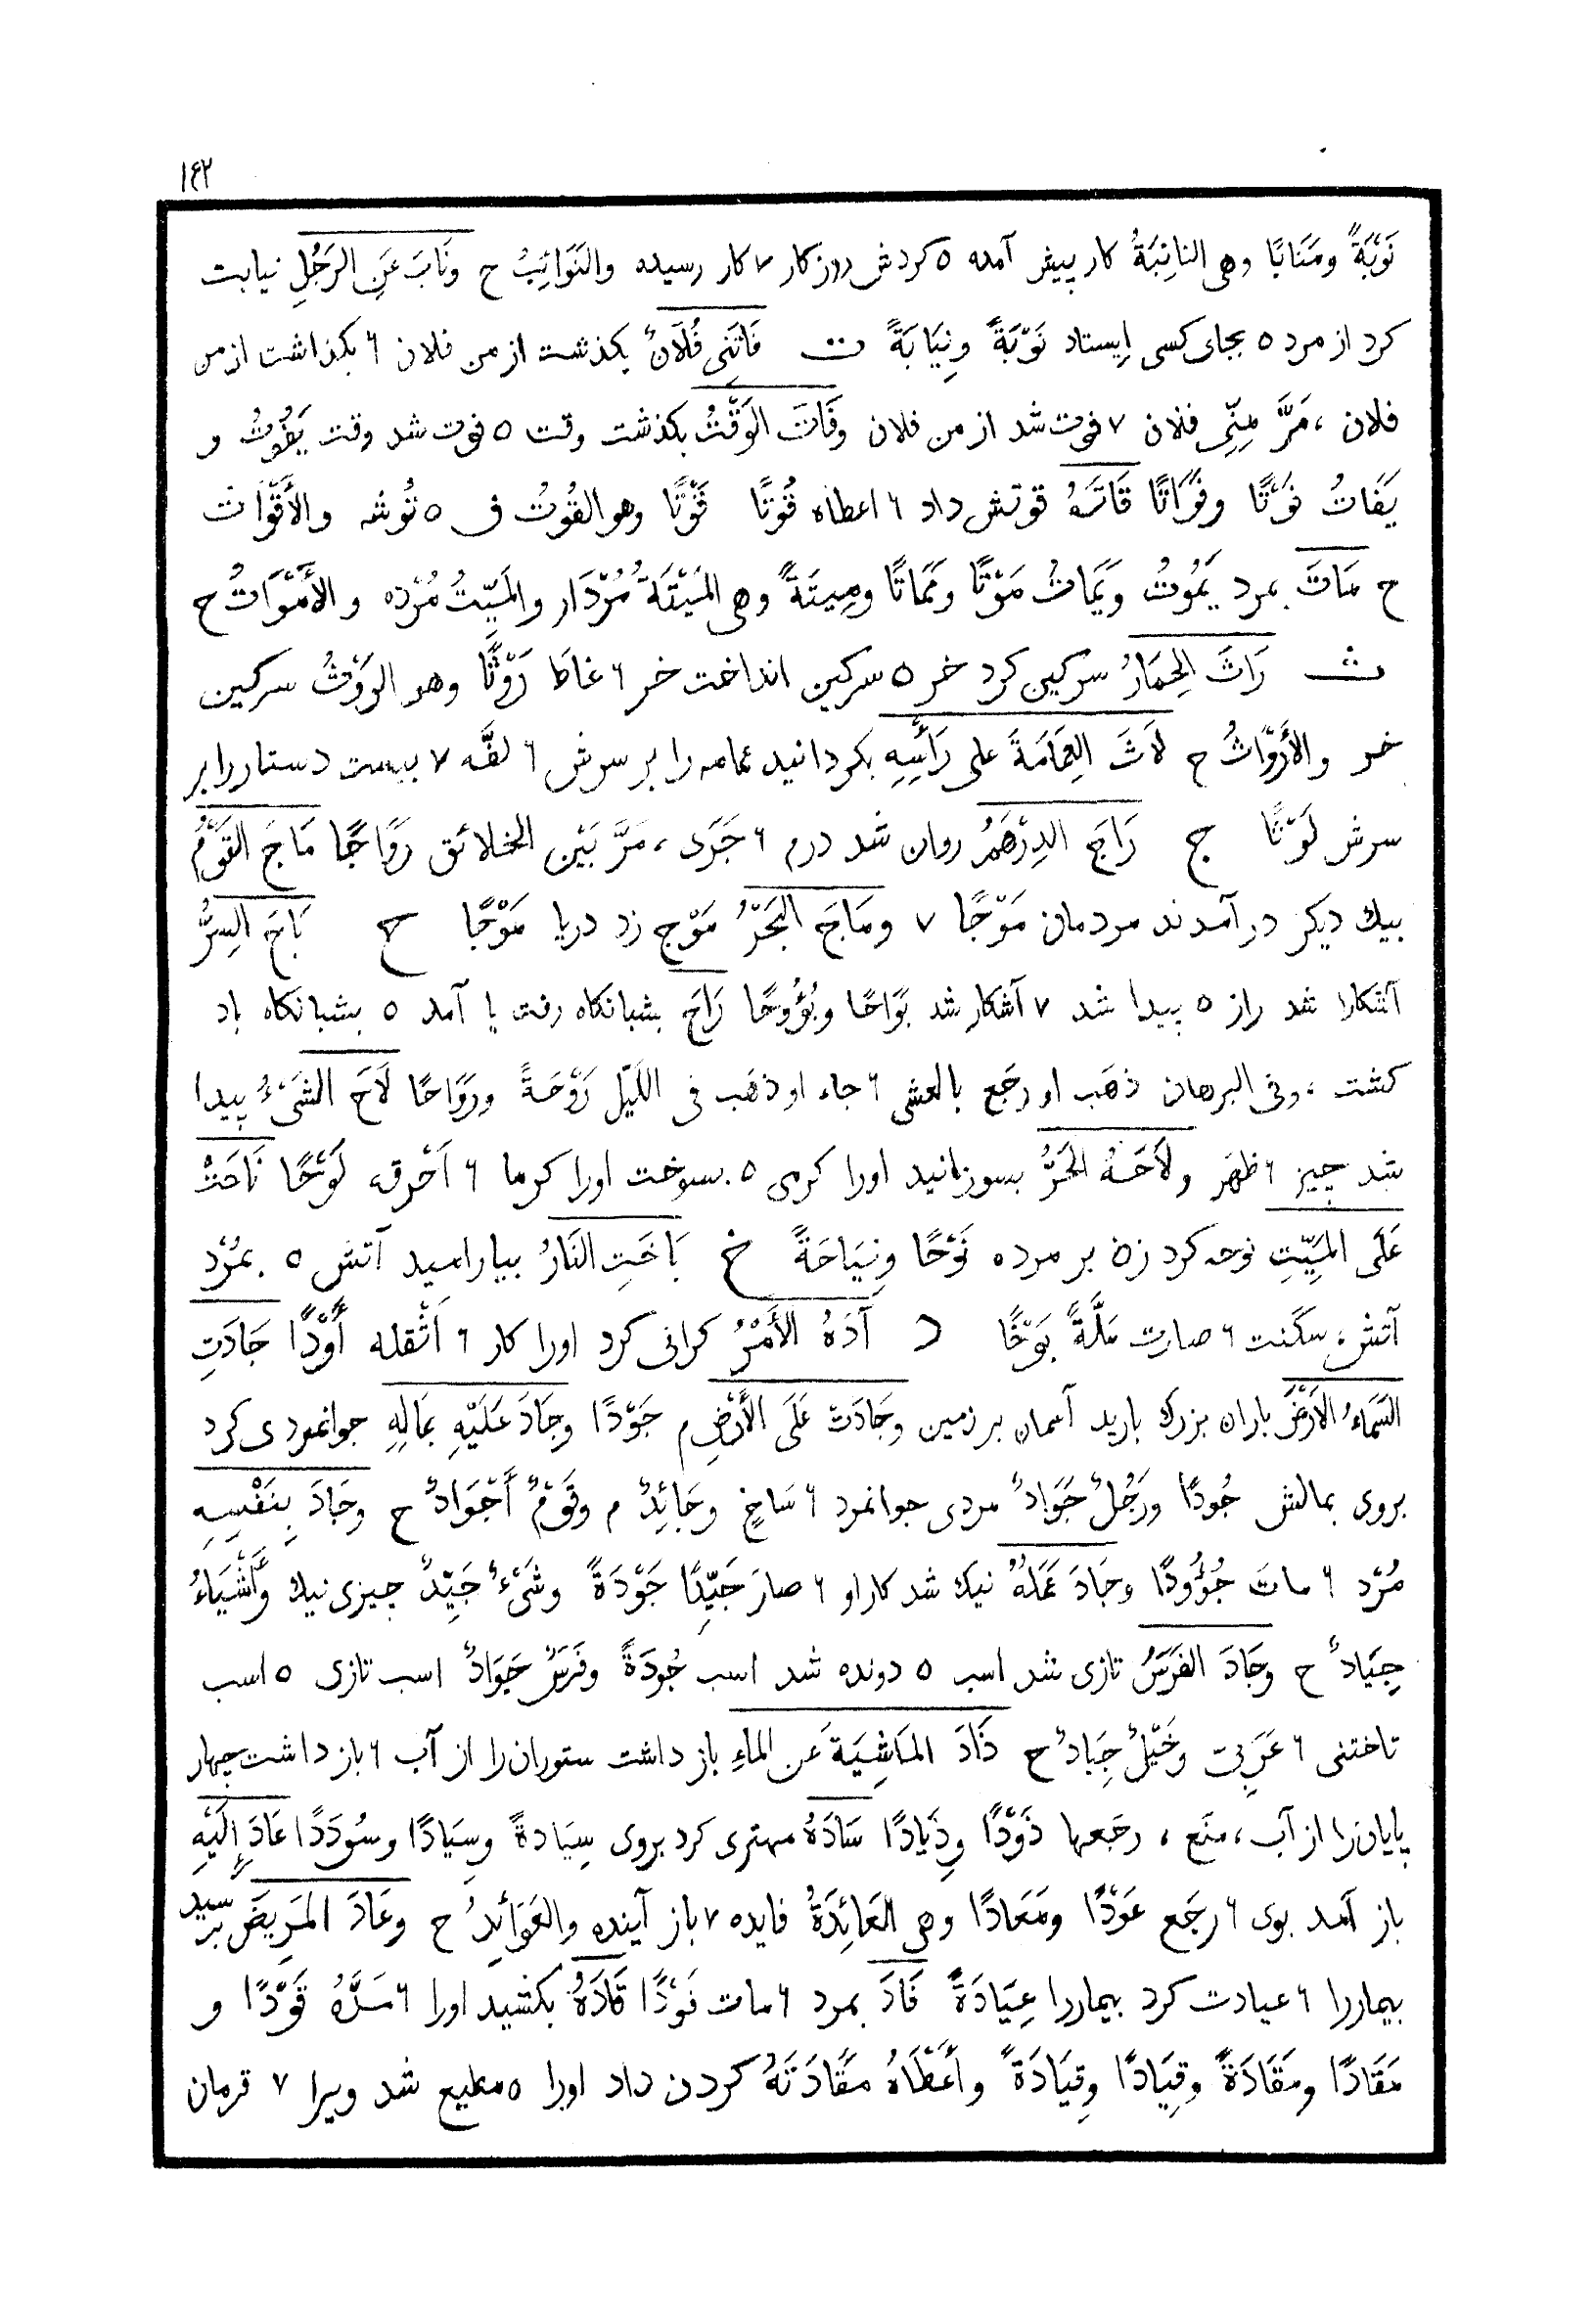 ١٤٢
نَوْبَةً ومَنَابًا وهى النائِبَةُ كار پيش آمده ٥ كردش روزكار ٧ كار رسيده والنَوَائِبُ ح ونَابَ عَنِ الرَجُلِ نيابت
كرد از مرد ٥ بجاى كسى اِيستاد نَوْبَةً ونِيَابَةً ت فَاتَنِى فُلَانٌ بكذشت از من فلان ٦ بكذاشت از من
فلان ، مَرَّ مِنِّى فلان ٧ فوت شد از من فلان وفَاتَ الوَقْتُ بكذشت وقت ٥ فوت شد وقت يَفُوتُ و
يَفَاتُ فَوْتًا وفَوَاتًا قَاتَهُ قوتش داد ٦ اعطاه قُوتًا قَوْتًا وهو القُوتُ ف ٥ تُوشه والأَقْوَات
ح مَاتَ بمرد يَمُوتُ ويَمَاتُ مَوْتًا ومَمَاتًا ومِيتَةً وهى المَيْتَةُ مُرْدَار والمَيِّتُ مُرْده والأَمْوَاتُ ح
ث رَاثَ الحِمَارُ سركين كرد خر ٥ سركين انداخت خر ٦ غاطَ رَوْثًا وهو الرَوْثُ سركين
خر والأَرْوَاثُ ح لَاثَ العِمَامَةَ على رَأْسِهِ بكردانيد عمامه را بر سرش ٦ لفَّه ٧ ببست دستار را بر
سرش لَوْثًا ج رَاجَ الدِرْهَمُ روان شد درم ٦ جَرَى ، مَرَّ بَيْن الخلائق رَوَاجًا مَاجَ القَوْمُ
بيك ديكر در آمدند مردمان مَوْجًا ٧ ومَاجَ البَحْرُ مَوْج زد دريا مَوْجًا ح بَاحَ السِرُّ
آشكارا شد راز ٥ پيدا شد ٧ آشكار شد بَوَاحًا وبُؤُوحًا رَاحَ بشبانكاه رفت يا آمد ٥ بشبانكاه باد
كشت ، وفى البرهان ذهَب او رجَع بالعشى ٦ جاء او ذهَب فى اللَيْل رَوْحَةً ورَوَاحًا لَاحَ الشَىْءُ پيدا
شد چيز ٦ ظهَر ولَاحَهُ الحَرُّ بسوزانيد اورا كرمى ٥ بسوخت اورا كرما ٦ اَحْرقه لَوْحًا نَاحَتْ
عَلَى المَيِّتِ نوحه كرد زن بر مرده نَوْحًا ونِيَاحَةً خ بَاخَتِ النَارُ بياراميد آتش ٥ بمُرْد
آتش ، سكنت ٦ صارت مَلَّةً بَوْخًا د آدَهُ الأَمْرُ كرانى كرد اورا كار ٦ اَثْقله أَوْدًا جَادَتِ
السَمَاءُ الأَرْضَ باران بزرك باريد آسمان بر زمين وجَادَتْ عَلَى الأَرْضِ م جَوْدًا وجَادَ عَلَيْهِ بمَالِهِ جوانمردى كرد
بروى بمالش جُودًا ورَجُلٌ جَوَادٌ مردى جوانمرد ٦ سَاخٍ وجَائِدٌ م وقَوْمٌ أَجْوَادٌ ح وجَادَ بِنَفْسِهِ
مُرْد ٦ ماتَ جُؤُودًا وجَادَ عَمَلُهُ نيك شد كار او ٦ صارَ جَيِّدًا جَوْدَةً وشَىْءٌ جَيِّدٌ چيزى نيك وأَشْيَاءُ
جِيَادٌ ح وجَادَ الفَرَسُ تازى شد اسب ٥ دونده شد اسب جُودَةً وفَرَسٌ جَوَادٌ اسب تازى ٥ اسب
تاختنى ٦ عَرَبِىّ وخَيْلٌ جِيَادٌ ح ذَادَ المَاشِيَةَ عن الماءِ باز داشت ستوران را از آب ٦ باز داشت چهار
پايان را از آب ، منَع ، رجَعها ذَوْدًا وذِيَادًا سَادَهُ مهترى كرد بروى سِيَادةً وسِيَادًا وسُودَدًا عَادَ إِلَيْهِ
باز آمد بوى ٦ رجَع عَوْدًا ومَعَادًا وهى العَائِدَةُ فايده ٧ باز آينده والعَوَائِدُ ح وعَادَ المَرِيضَ بپرسيد
بيماررا ٦ عيادت كرد بيماررا عِيَادَةً فَادَ بمرد ٦ مات فَوْدًا قَادَهُ بكشيد اورا ٦ مَدَّهُ قَوْدًا و
مَقَادًا ومَقَادَةً وقِيَادًا وقِيَادَةً وأَعْطَاهُ مَقَادَتَهُ كردن داد اورا ٥ مطيع شد ويرا ٧ فرمان